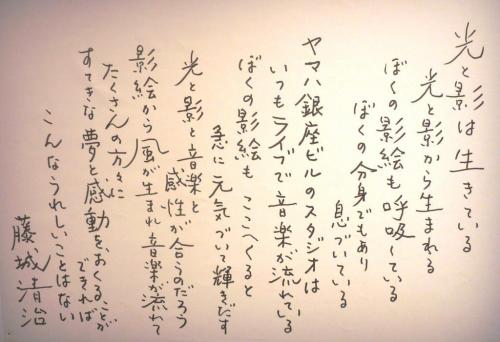 光と影は生きている
光と影から生まれる
ぼくの影絵も呼吸している
ぼくの分身でもあり
息づいている
ヤマハ銀座ビルのスタジオは
いつもライブで音楽が流れている
ぼくの影絵も ここへくると
急に元気づいて輝きだす
光と影と音楽と
感性が合うのだろう
影絵から風が生まれ音楽が流れて
たくさんの方々に
すてきな夢と感動をおくることが
できれば
こんなうれしいことはない
藤城清治